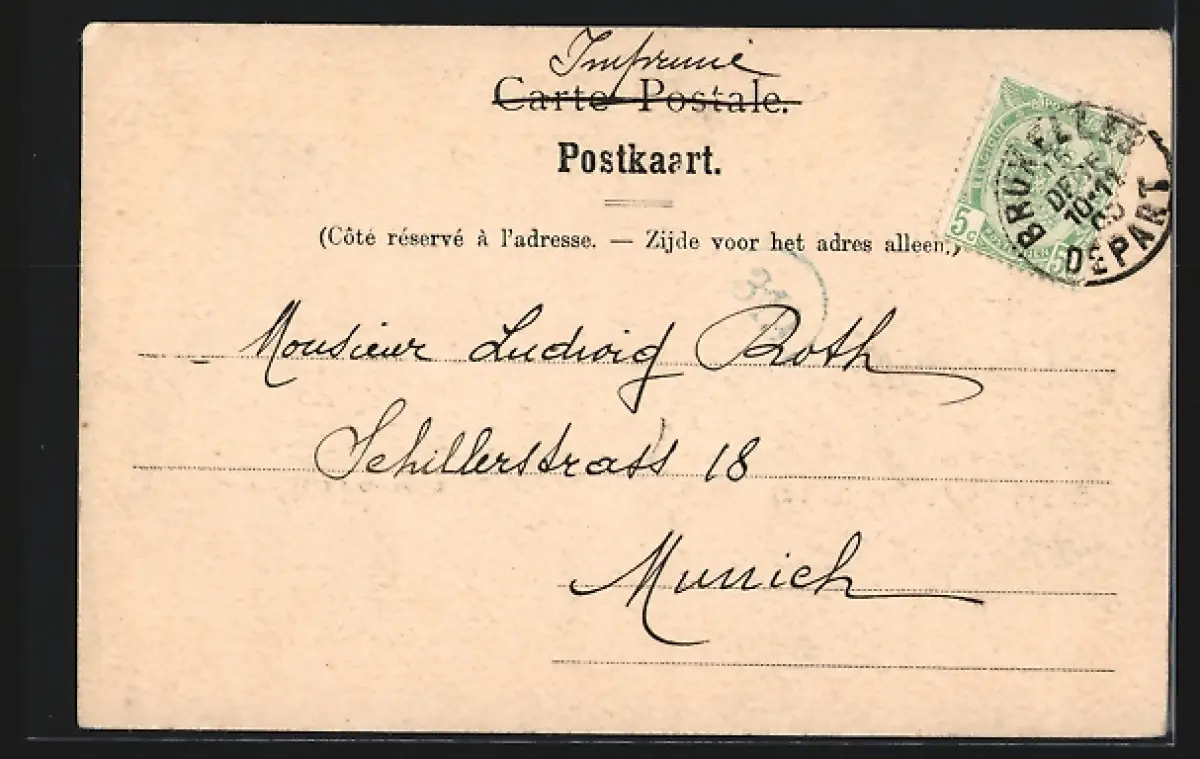 Imprimé
Carte Postale.
Postkaart.
(Côté réservé à l'adresse. — Zijde voor het adres alleen.)
5c
5c
BRUXELLES
DEPART
10-11
Monsieur Ludwig Roth
Schillerstrass 18
Munich